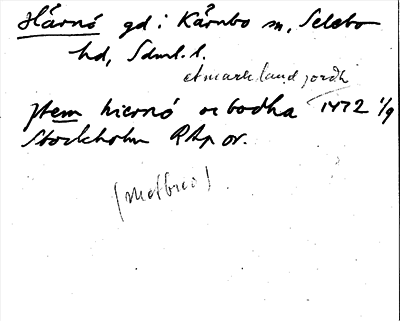 Härnö gd i Kärnbo sn, Selebo
hd, Sdml. l.
et mark land jordh
Jtem hiernö oc bodha 1472 1/9
Stockholm RAp or.
(